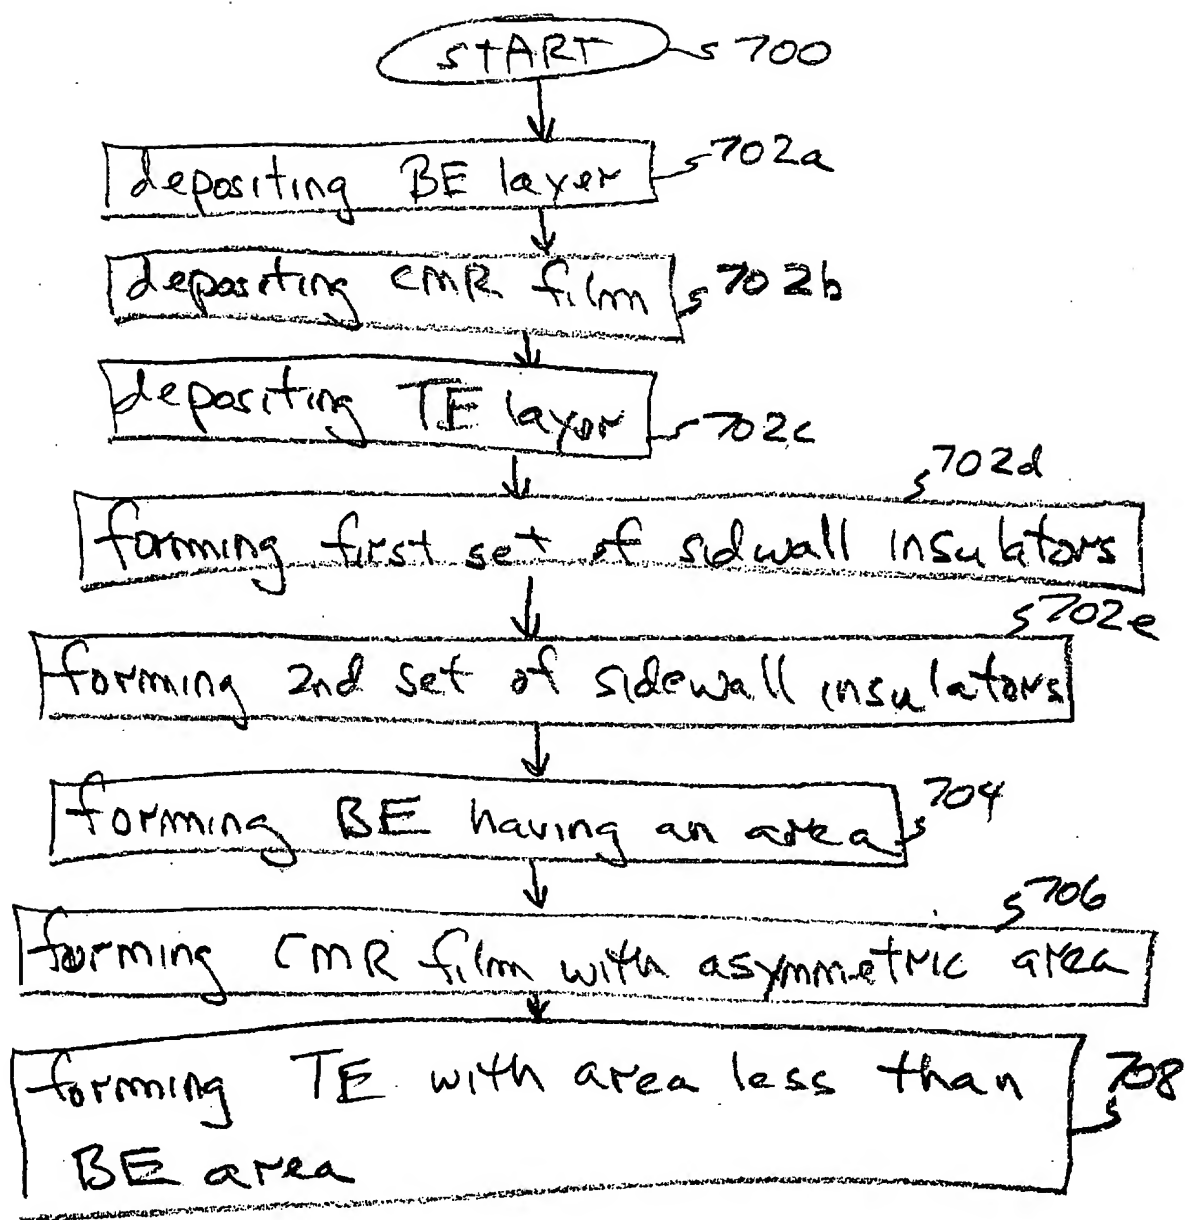 START 700
depositing BE layer 702a
depositing CMR film 702b
depositing TE layer 702c
702d
forming first set of sidwall insulators
702e
forming 2nd set of sidewall insulators
forming BE having an area 704
706
forming CMR film with asymmetric area
forming TE with area less than 708
BE area